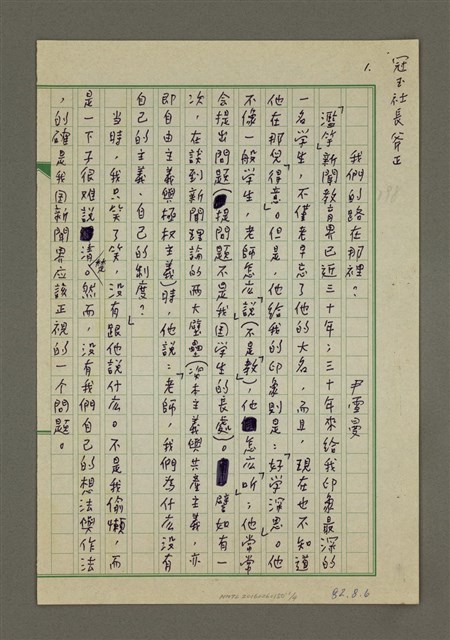 冠玉社長斧正
1.
我們的路在那裡？ 尹雪曼
「濫竽」新聞教育界已近三十年；三十年來給我印象最深的
一名学生，不僅老早忘了他的大名，而且，現在也不知道
他在那兒「得意」。但是，他給我的印象則是：「好学深思」。他
不像一般学生，老師怎么「說」（不是「教」），他怎么「听」；他常常
會提出問題（提問題不是我国学生的長處）。譬如有一
次，在談到新聞理論的兩大壁壘（資本主義與共產主義，亦
即自由主義與極权主義）時，他說：「老師，我們為什么没有
自己的主義、自己的制度？」
當時，我只笑了笑，没有跟他說什么。不是我偷懶，而
是一下子很难說清楚。然而，没有我們自己的想法與作法
，的確是我国新聞界应該正視的一个問題。
82.8.6